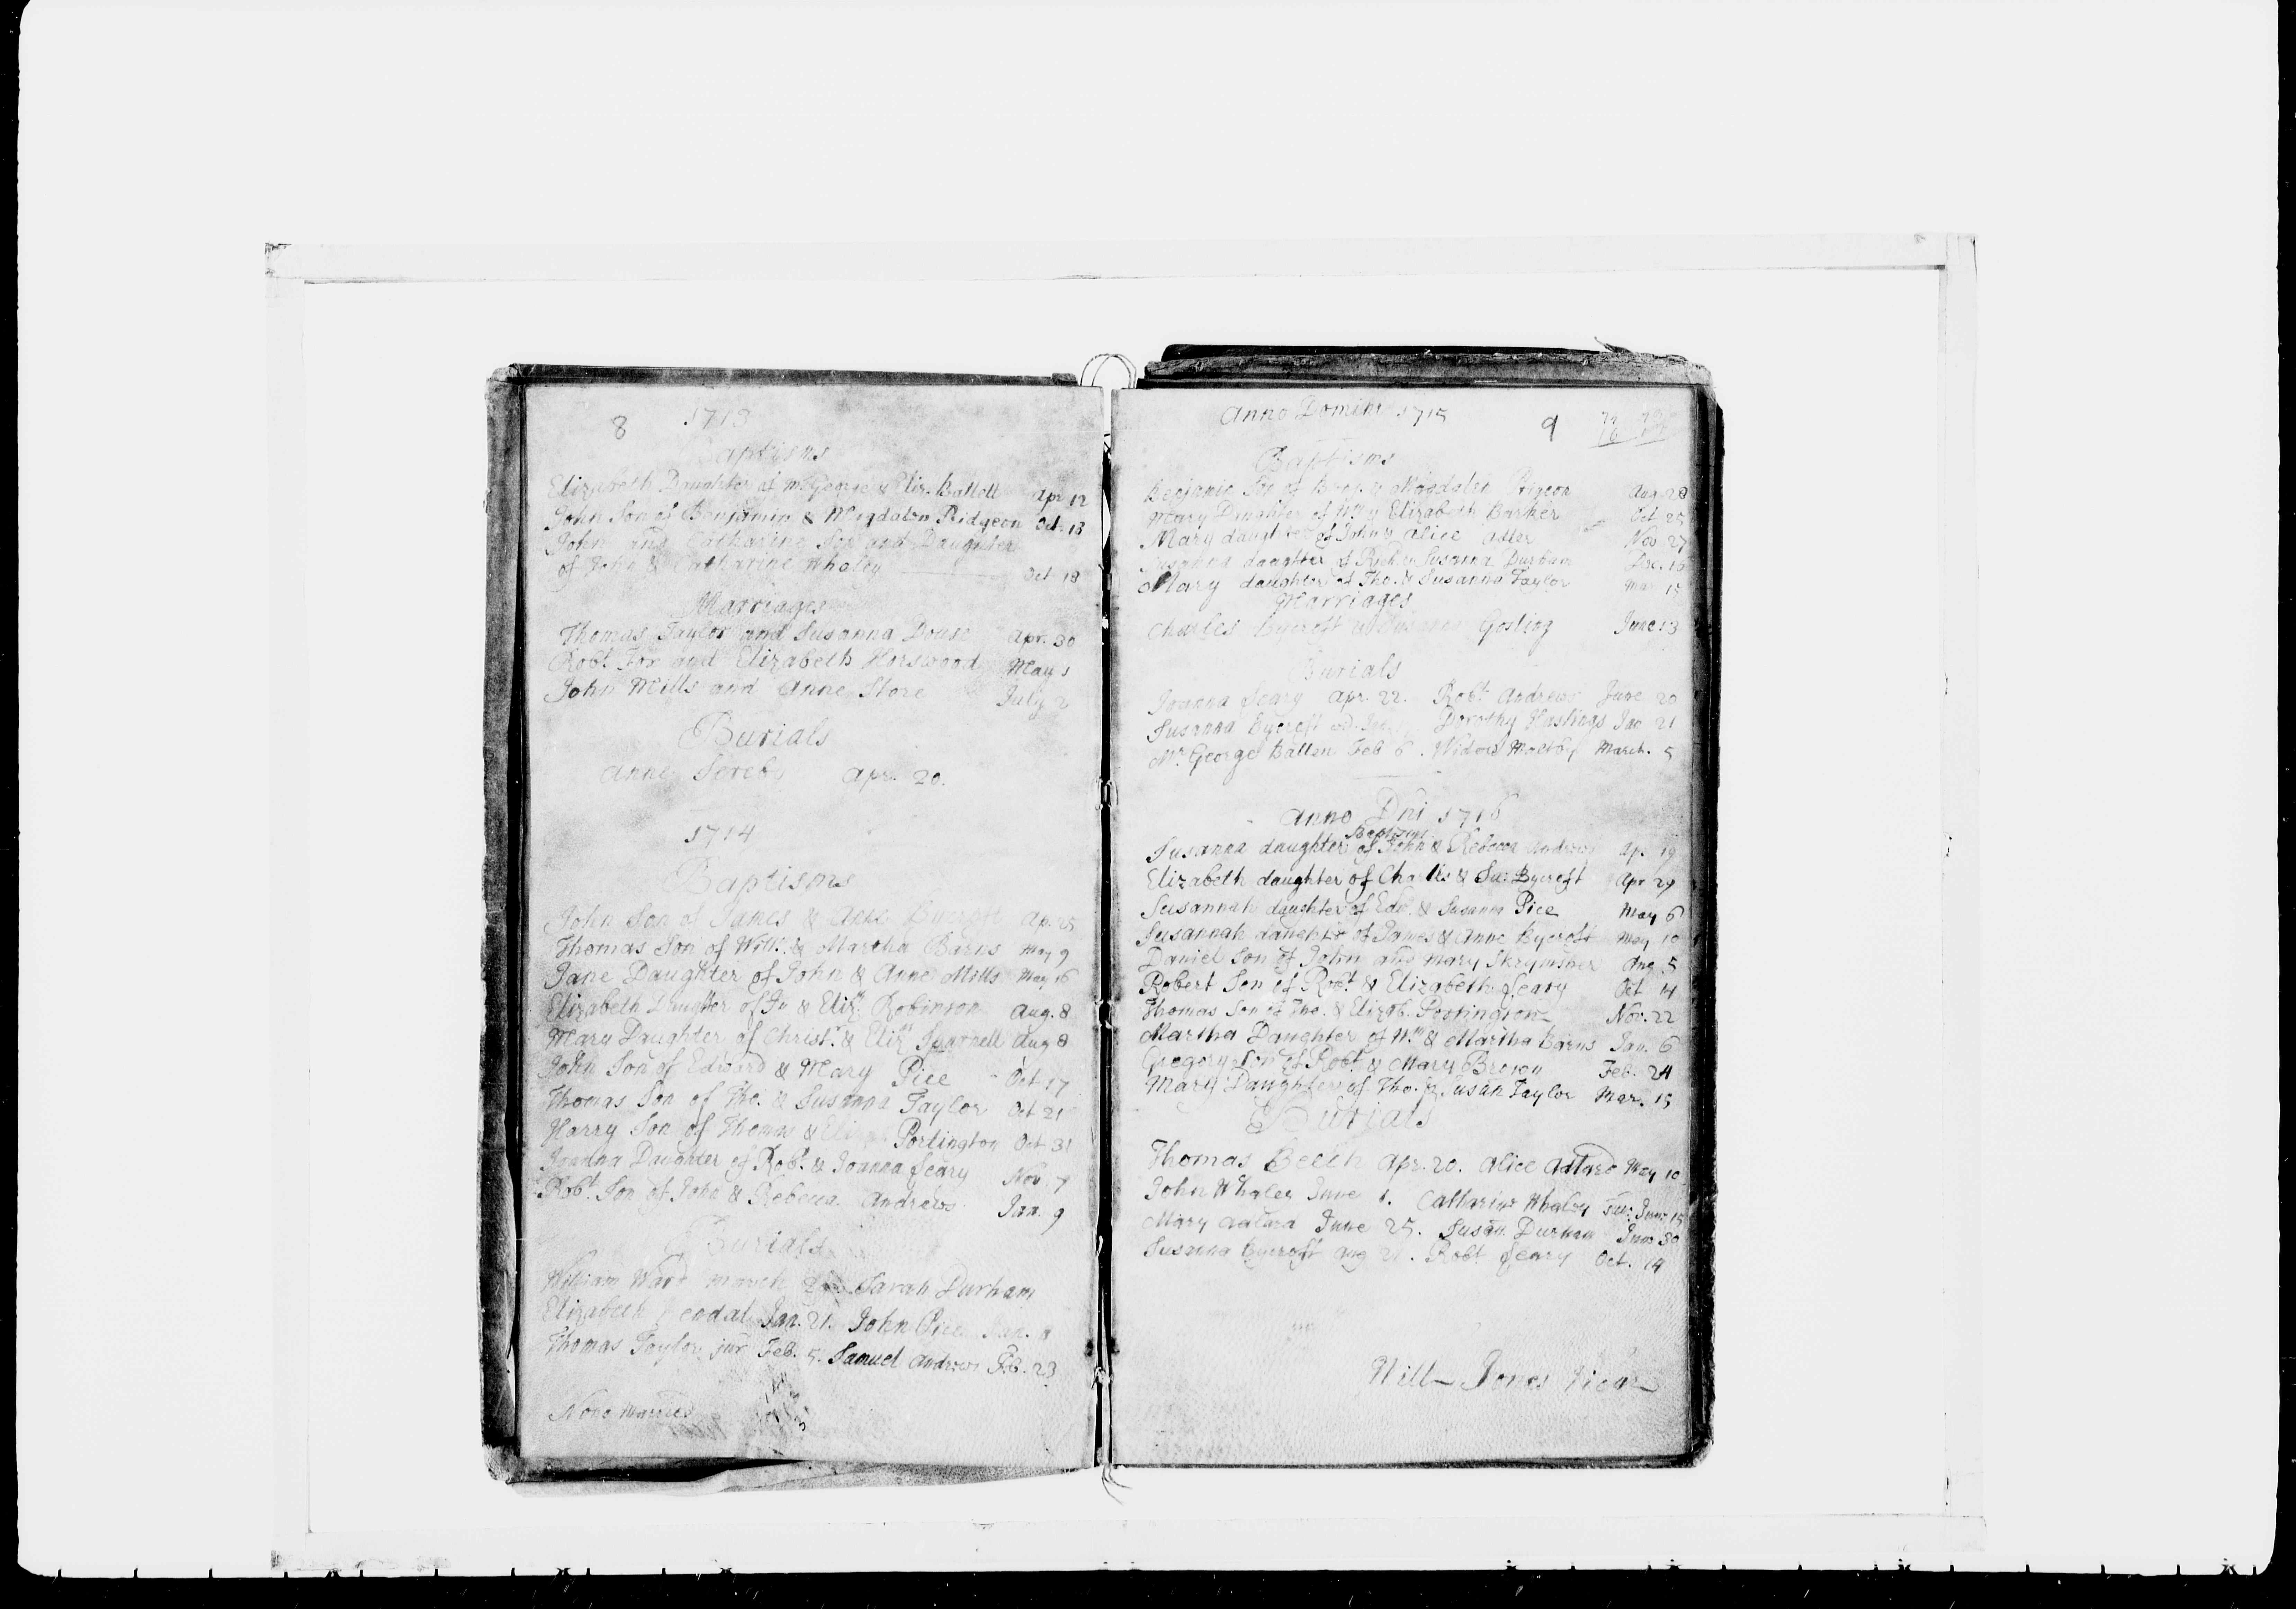 8 1713
Baptisms
Elizabeth Daughter of Mr George & Eliz. Battell Apr 12
John Son of Benjamin & Magdalen Pidgeon Oct. 13
John and Catharine Son and Daughter
of John & Catharine Whaley Oct 18
Marriages
Thomas Taylor and Susanna Douse Apr. 30
Robt. Fox and Elizabeth Horswood May 1
John Mills and Anne Store July 2
Burials
Anne Apr. 20.
1714
Baptisms
John Son of James & Anne Bycroft Ap. 25
Thomas Son of Willm. & Martha Barns May 9
Jane Daughter of John & Anne Mills May 16
Elizabeth Daughter of Jn & Eliz. Robinson Aug. 8
Mary Daughter of Christr. & Eliz. Aug 8
John Son of Edward & Mary Pice Oct 17
Thomas Son of Tho. & Susanna Taylor Oct 21
Harry Son of Thomas & Portington Oct 31
Joanna Daughter of Robt. & Joanna Seary Nov. 7
Robt. Son of John & Rebecca Andrews Jan. 9
Burials
William Ward March Sarah Durham
Elizabeth Jan. 21. John Pice Jan. 8
Thomas Taylor junr Feb. 5. Samuel Andrews Feb. 23
None Married
Anno Domini 1715 9
Baptisms
Benjamin Son of Benj. & Magdalen Pigeon Aug 28
Mary Daughter of Wm & Elizabeth Barker Oct 25
Mary daughter of John & Alice Nov 27
Susanna daughter of Rich & Susanna Durham Dec. 16
Mary daughter of Tho. & Susanna Taylor Mar 15
Marriages
Charles Bycroft & Susanna Gosling June 13
Burials
Joanna Seary Apr. 22. Robt. Andrews June 20
Susanna Bycroft Dorothy Hastings Jan 21
Mr. George Batten Feb 6. Widow March. 5
Anno Dni 1716
Baptisms
Susanna daughter of John & Rebecca Andrews Ap. 19
Elizabeth daughter of Charles & Su: Bycroft Apr 29
Susannah daughter of Edw. & Susanna Pice May 6
Susannah daughter of James & Anne Bycroft May 10
Daniel Son of John and Mary Skrymsher Aug 5
Robert Son of Robt. & Elizabeth Seary Oct 14
Thomas Son of Tho. & Elizab. Portington Nov. 22
Martha Daughter of Wm & Martha Barns Jan. 6
Gregory Son of Robt. & Mary Brown Feb. 24
Mary Daughter of Tho. & Susan Taylor Mar. 15
Burials
Thomas Beech Apr. 20. Alice May 10
John Whaley June 1. Catharine Whaley June 15
Mary June 25. Susan Durham June 30
Susanna Bycroft Aug 21. Robt Seary Oct. 14
Will Jones Vicar